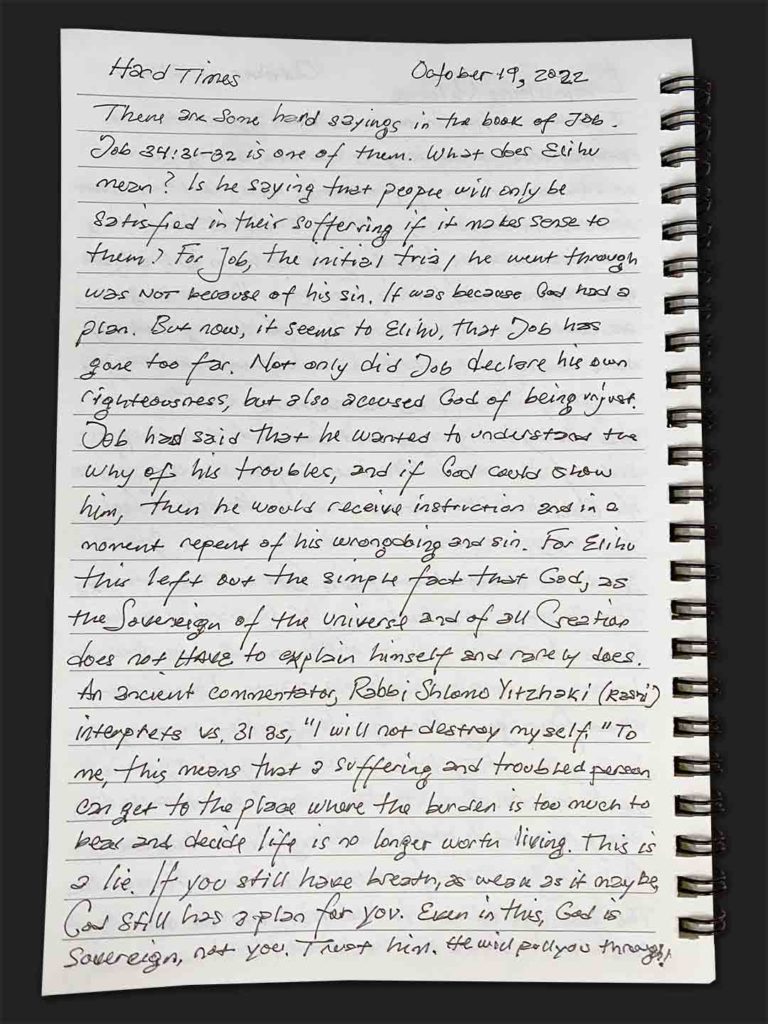 Hard Times October 19, 2022
There are some hard sayings in the book of Job.
Job 34:31-32 is one of them. What does Elihu
mean? Is he saying that people will only be
satisfied in their suffering if it makes sense to
them? For Job, the initial trial he went through
was NOT because of his sin. It was because God had a
plan. But now, it seems to Elihu, that Job has
gone too far. Not only did Job declare his own
righteousness, but also accused God of being unjust.
Job had said that he wanted to understand the
why of his troubles, and if God could show
him, then he would receive instruction and in a
moment repent of his wrongdoing and sin. For Elihu
this left out the simple fact that God, as
the Sovereign of the universe and of all Creation
does not HAVE to explain himself and rarely does.
An ancient commentator, Rabbi Shlomo Yitzhaki (Rashi)
interprets vs. 31 as, "I will not destroy myself." To
me, this means that a suffering and troubled person
can get to the place where the burden is too much to
bear and decide life is no longer worth living. This is
a lie. If you still have breath, as weak as it may be,
God still has a plan for you. Even in this, God is
Sovereign, not you. Trust him. He will pull you through!